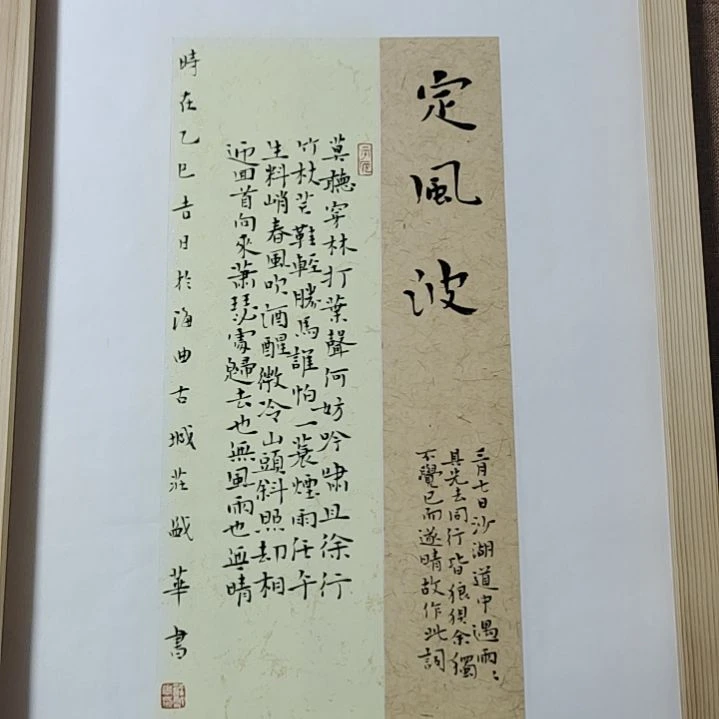 定風波
三月七日沙湖道中遇雨〻
具先去同行皆狼狽余獨
不覺已而遂晴故作此詞
莫聽穿林打葉聲何妨吟嘯且徐行
竹杖芒鞋輕勝馬誰怕一蓑煙雨任平
生料峭春風吹酒醒微冷山頭斜照却相
迎回首向來蕭瑟處歸去也無風雨也無晴
時在乙巳吉日於海曲古城莊華書